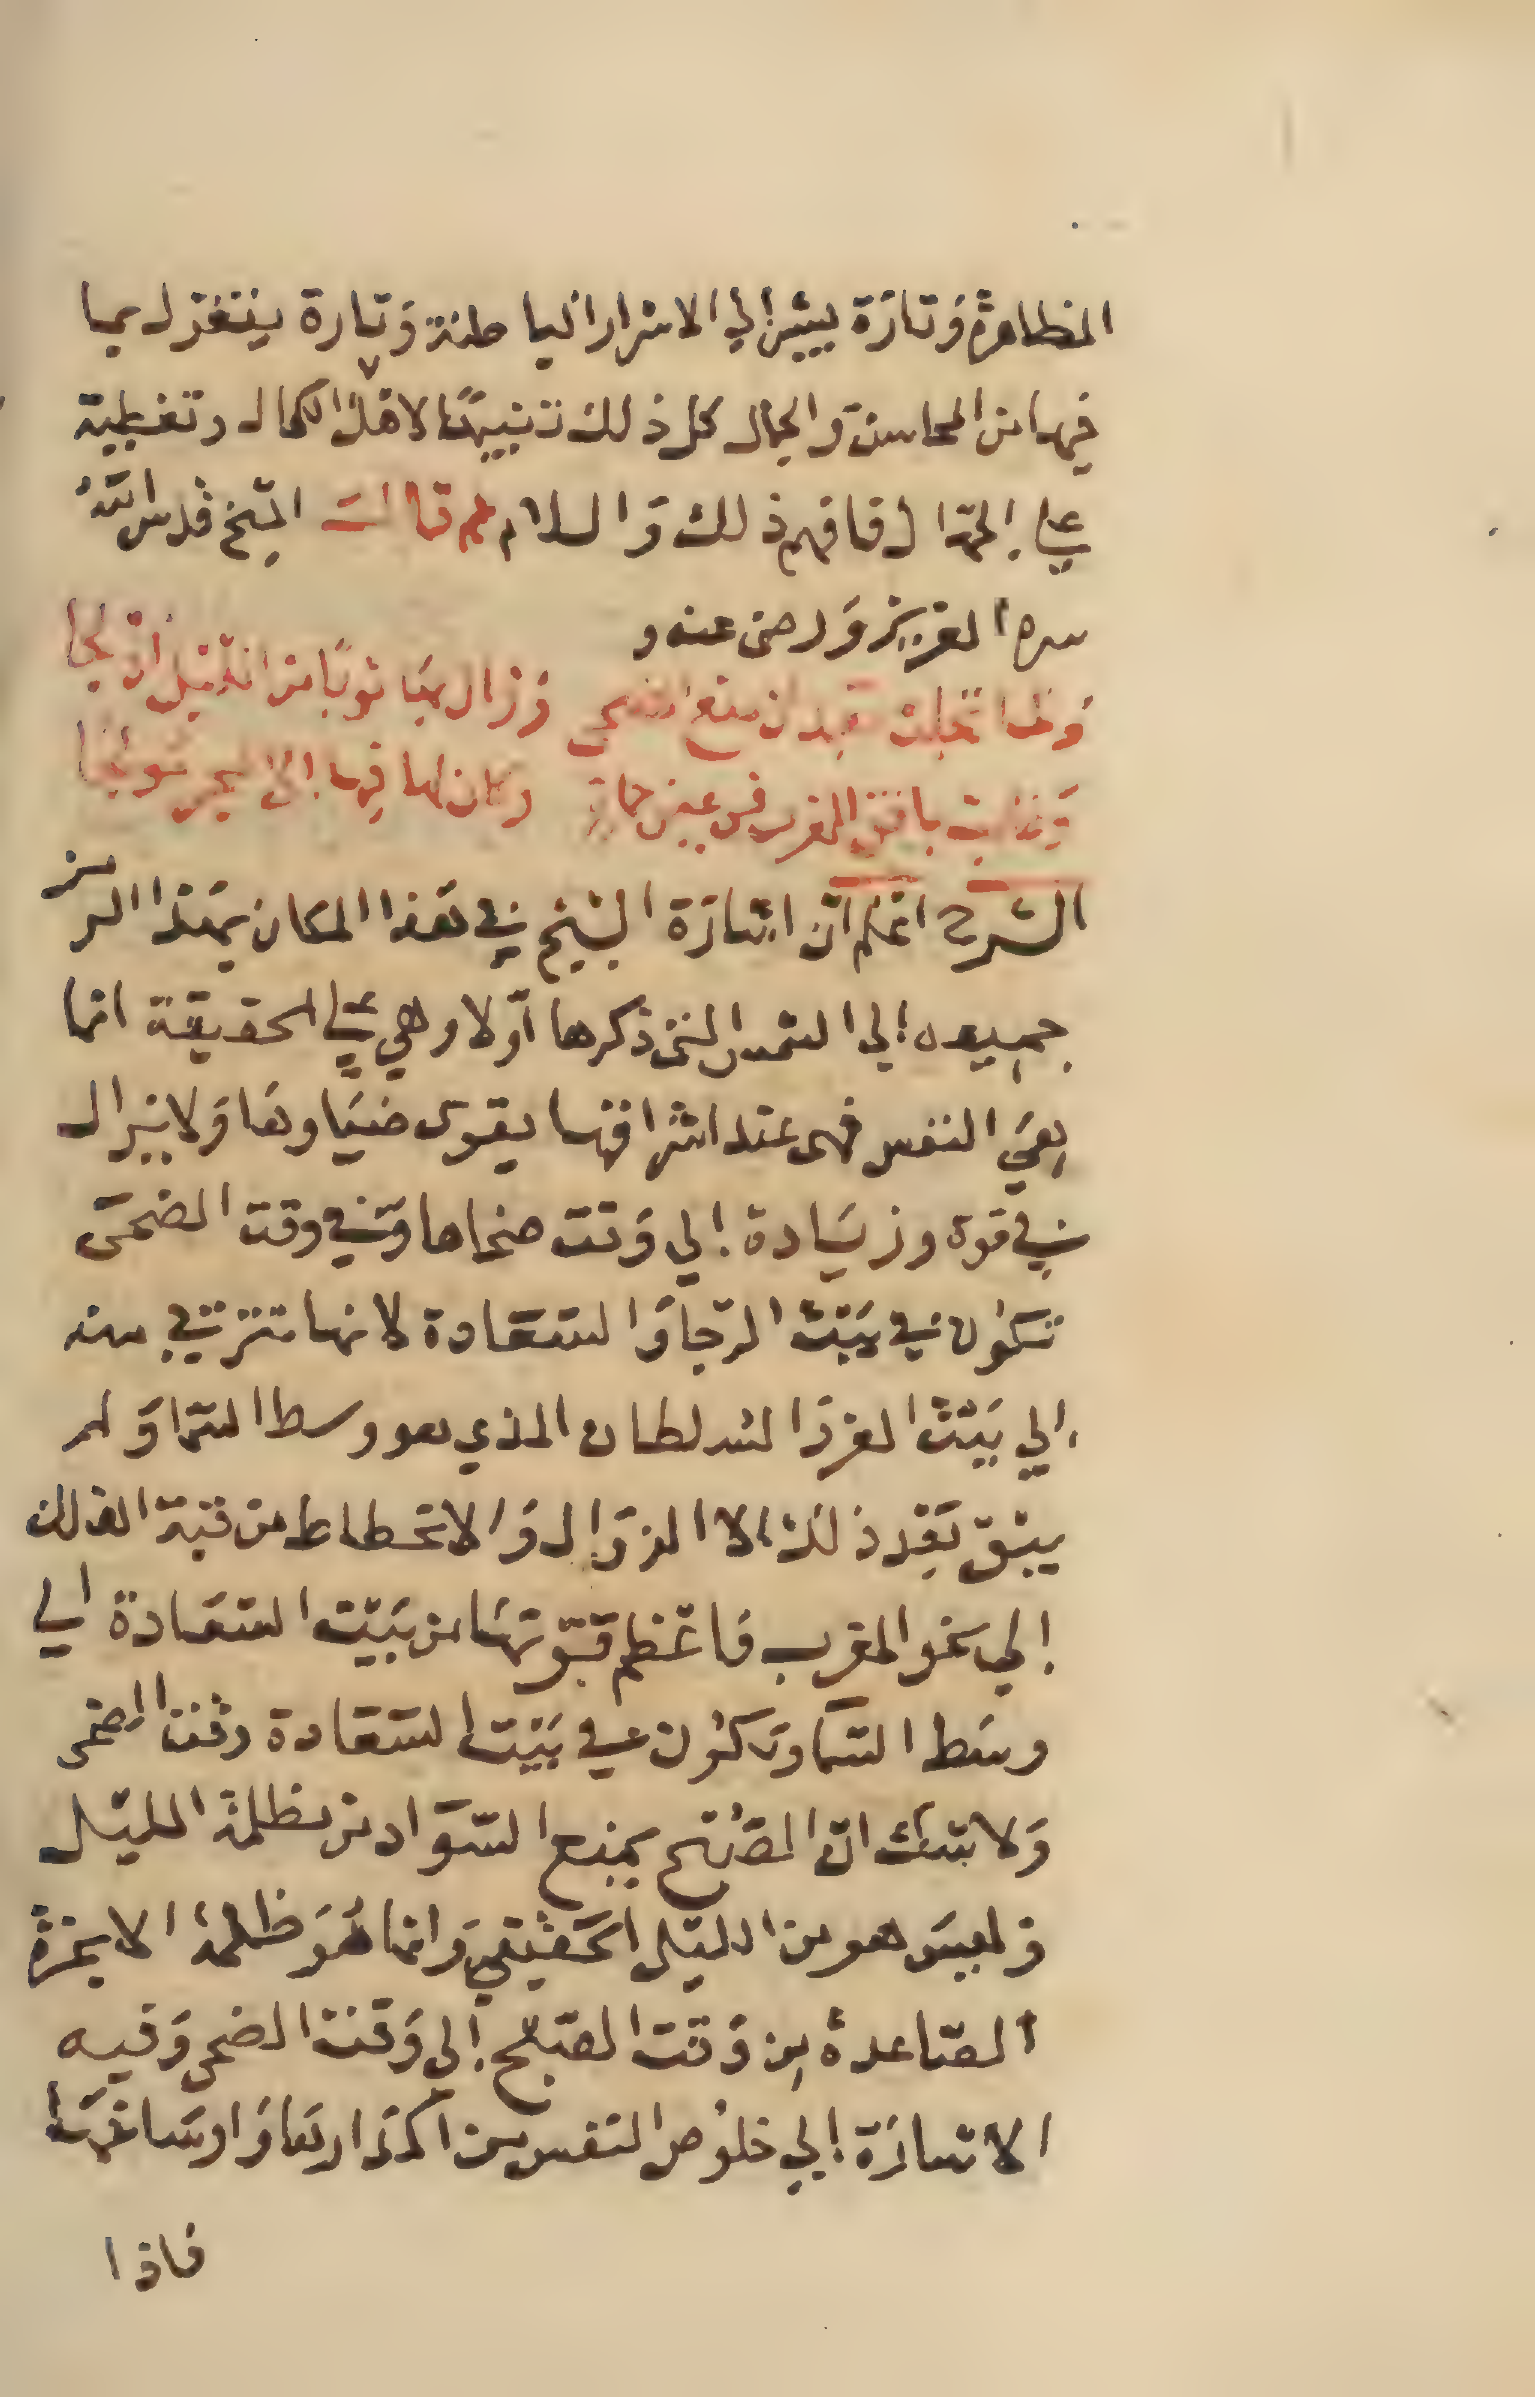 الظاهرة وتارة يشير إلى الاسرار الباطنة وتارة يتغزل بما
فيها من المحاسن والجمال كل ذلك تنبيها لاهل الكمال وتغطية
على الجهال فافهم ذلك والسلام ثم قال الشيخ قدس الله
سره العزيز ورضى عنه و
ولما تجلت بعد ان متع الضحى وزال بها ثوبا من الليل
وغابت بافق الغرب فى عين حماة وكان لها فيها الى
الشرح اعلم ان اشارة الشيخ في هذا المكان بهذا الرمز
جميعه إلى الشمس التى ذكرها أولا وهي على الحقيقة انما
هي النفس فهى عند اشراقها يقوى ضياوها ولا يزال
في قوة وزيادة إلي وقت ضحاها وفي وقت الضحى
تكون في بيت الرجا والسعادة لانها تترقي منه
إلي بيت العز والسلطان الذي هو وسط السما ولم
يبق بعد ذلك الا الزوال والانحطاط من قبة الفلك
إلي نحو المغرب فاعظم قوتها من بيت السعادة الي
وسط السما وتكون في بيت السعادة وقت الضحى
ولا شك ان الصبح يمنع السواد من ظلمة الليل
وليس هو من الليل الحقيقي وانما هو ظلمة الابخرة
الصاعدة من وقت الصبح إلى وقت الضحى وفيه
الاشارة إلي خلوص النفس من اكدارها واوساخها
فاذا